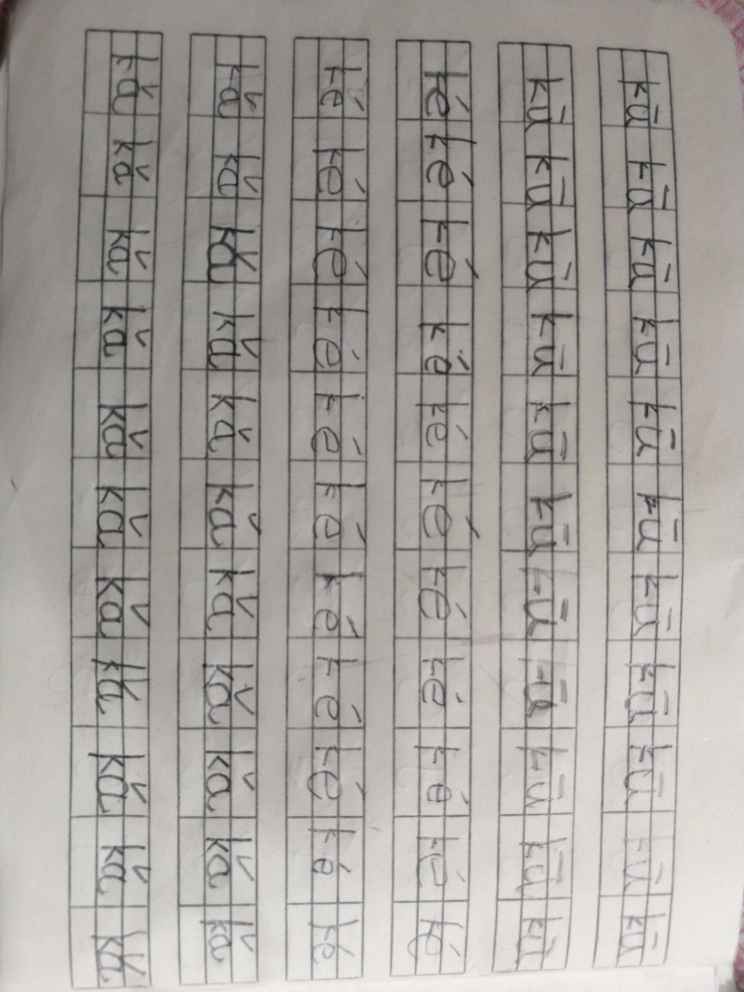 kū kū kū kū kū kū kū kū kū kū kū
kū kū kū kū kū kū kū kū kū kū kū
ké ké ké ké ké ké ké ké ké ké ké
ké ké ké ké ké ké ké ké ké ké ké
kǎ kǎ kǎ kǎ kǎ kǎ kǎ kǎ kǎ kǎ kǎ
kǎ kǎ kǎ kǎ kǎ kǎ kǎ kǎ kǎ kǎ kǎ